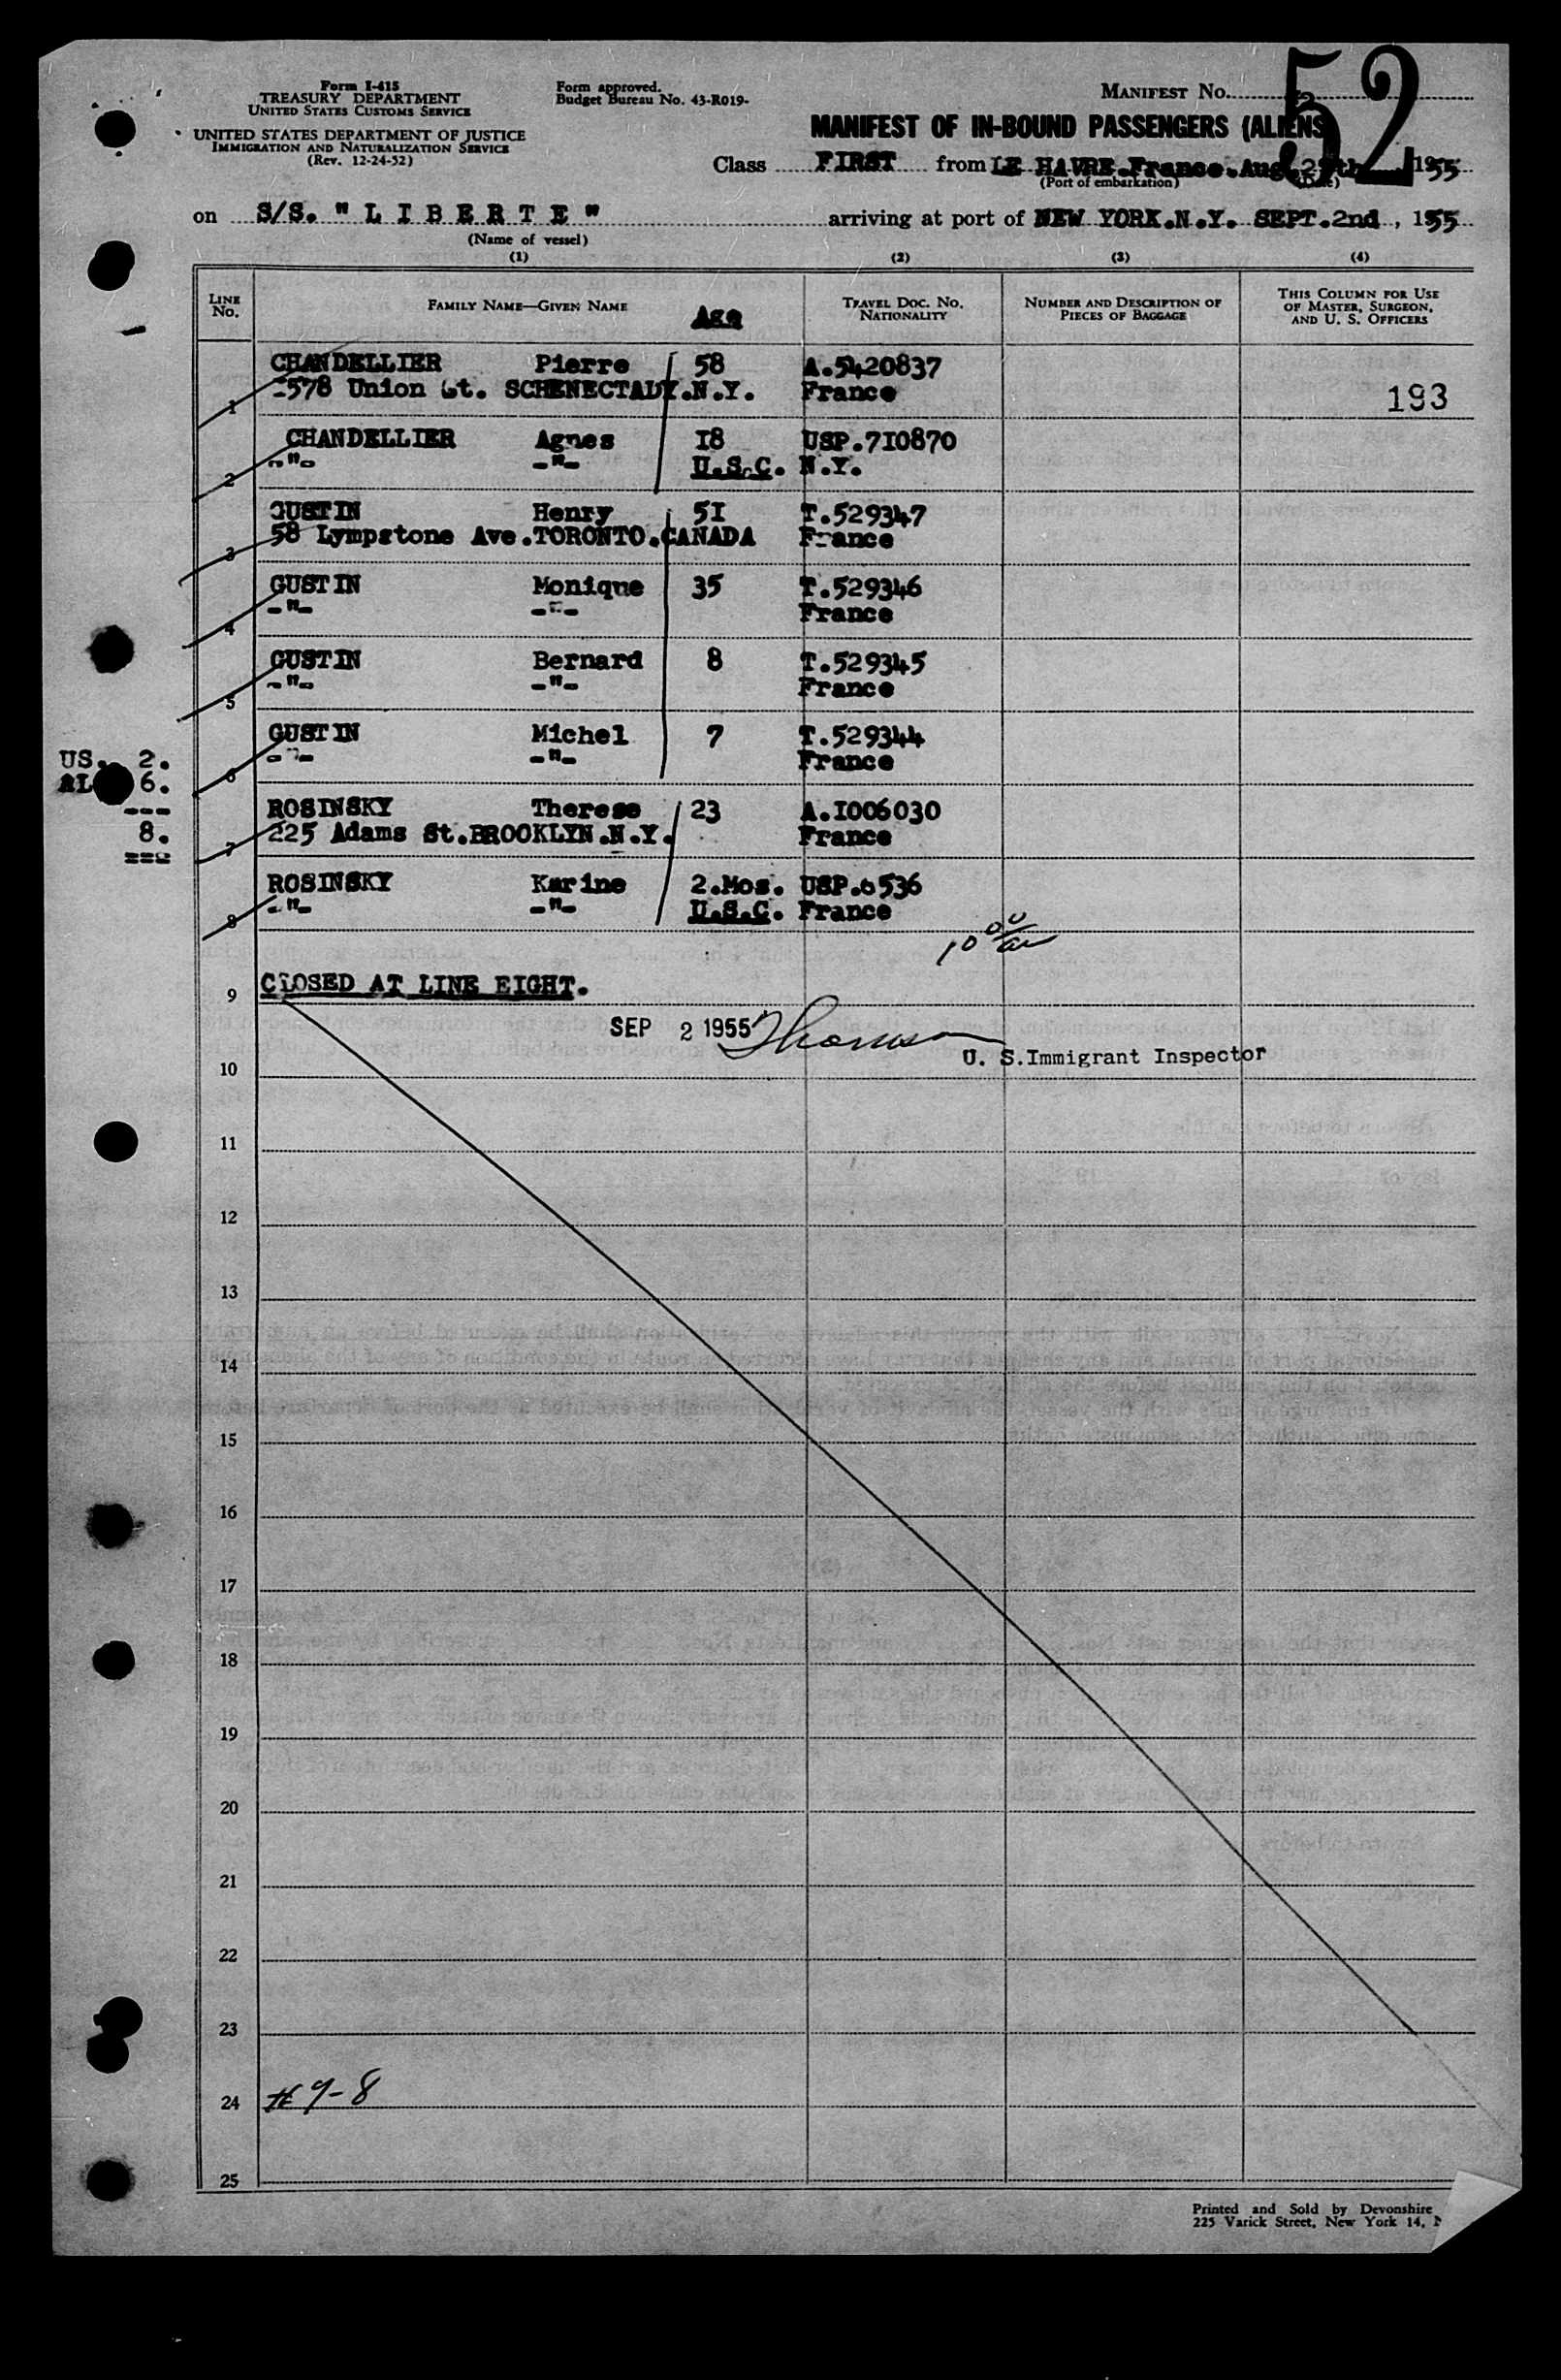 Form I-415
TREASURY DEPARTMENT
UNITED STATES CUSTOMS SERVICE
UNITED STATES DEPARTMENT OF JUSTICE
IMMIGRATION AND NATURALIZATION SERVICE
(Rev. 12-24-52)
Form approved.
Budget Bureau No. 43-R019-
MANIFEST No. 52
MANIFEST OF IN-BOUND PASSENGERS (ALIENS
Class FIRST from LE HAVRE.France.Aug. 1955
(Port of embarkation)
on S/S. "L I B E R T E" arriving at port of NEW YORK.N.Y. SEPT.2nd, 1955
(Name of vessel)
(1) (2) (3) (4)
LINE No. FAMILY NAME—GIVEN NAME Age TRAVEL DOC. NO. NATIONALITY NUMBER AND DESCRIPTION OF PIECES OF BAGGAGE THIS COLUMN FOR USE OF MASTER, SURGEON, AND U. S. OFFICERS
CHANDELLIER Pierre 58 A.5420837
1 578 Union St. SCHENECTADY.N.Y. France 193
CHANDELLIER Agnes I8 USP.7I0870
2 -"- -"- U.S.C. N.Y.
GUSTIN Henry 5I T.529347
3 58 Lympstone Ave.TORONTO.CANADA France
GUSTIN Monique 35 T.529346
4 -"- -"- France
GUSTIN Bernard 8 T.529345
5 -"- -"- France
GUSTIN Michel 7 T.529344
6 -"- -"- France
US. 2.
AL 6.
---
8.
===
ROSINSKY Therese 23 A.I006030
7 225 Adams St.BROOKLYN.N.Y. France
ROSINSKY Karine 2.Mos. USP.6536
8 -"- -"- U.S.C. France
10 00/au
9 CLOSED AT LINE EIGHT.
SEP 2 1955 Thomson
U. S.Immigrant Inspector
10
11
12
13
14
15
16
17
18
19
20
21
22
23
24 #9-8
25
Printed and Sold by Devonshire
225 Varick Street, New York 14, N